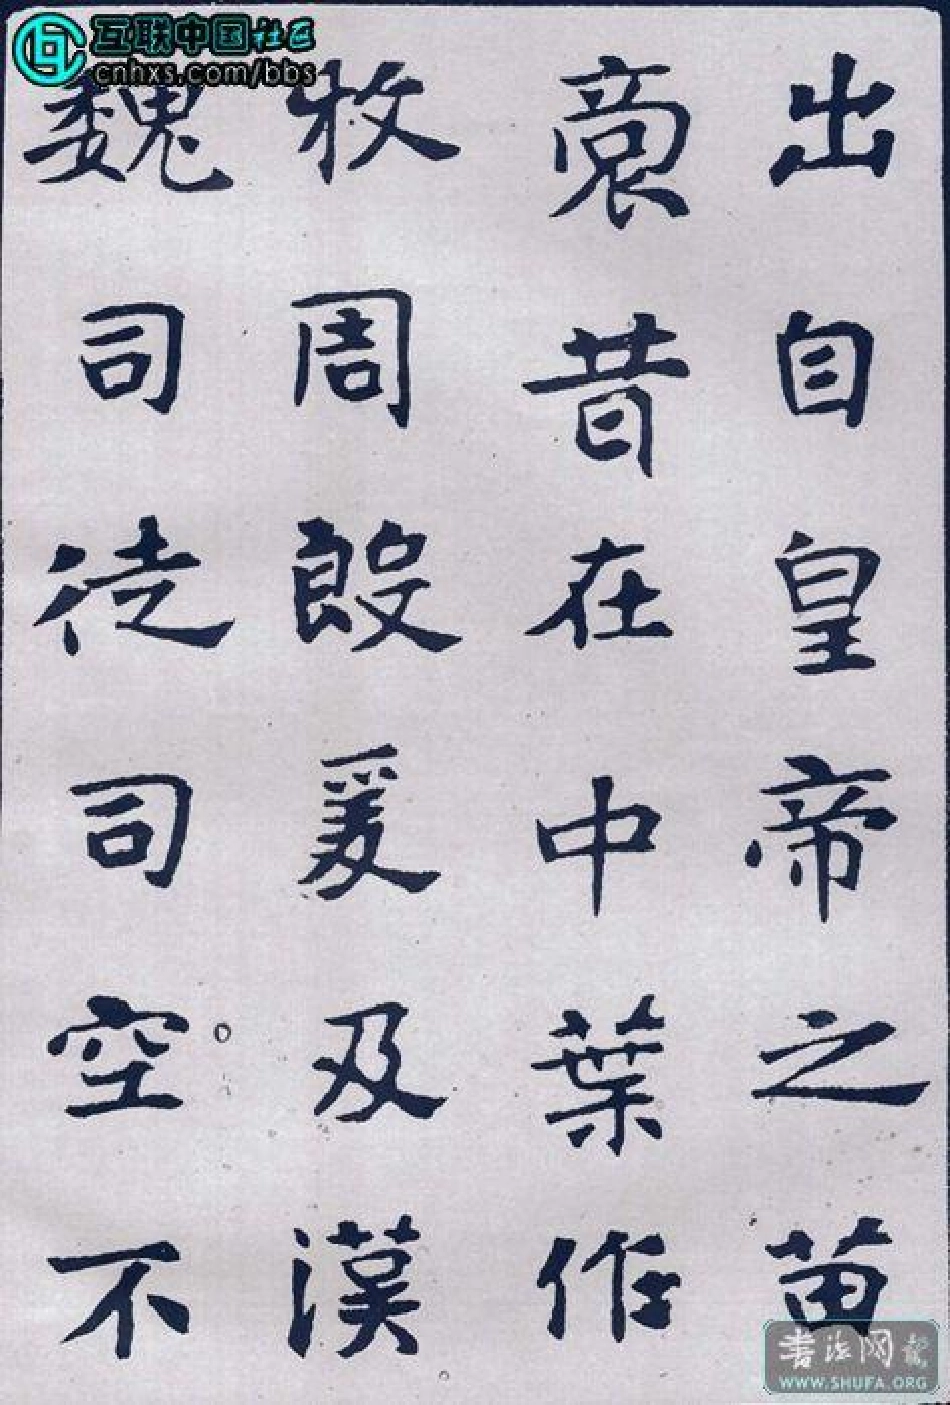 出自皇帝之苗
裔昔在中葉作
牧周殷爰及漢
魏司徒司空不
互联中国社区
cnhxs.com/bbs
书法网
WWW.SHUFA.ORG